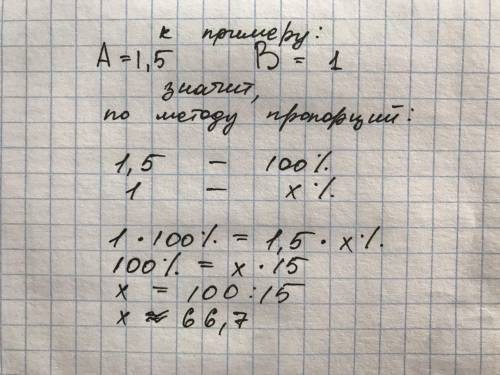 к примеру:
A = 1,5 B = 1
значит,
по методу пропорций:
1,5 — 100%
1 — x%
1 · 100% = 1,5 · x%
100% = x · 15
x = 100 : 15
x ≈ 66,7